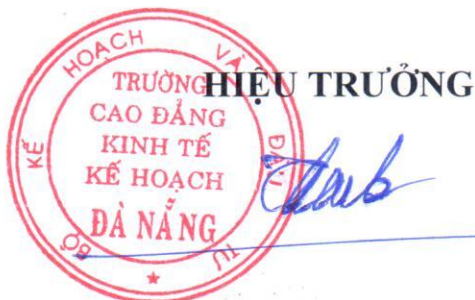 HIỆU TRƯỞNG
BỘ KẾ HOẠCH VÀ ĐẦU TƯ
TRƯỜNG
CAO ĐẲNG
KINH TẾ
KẾ HOẠCH
ĐÀ NẴNG